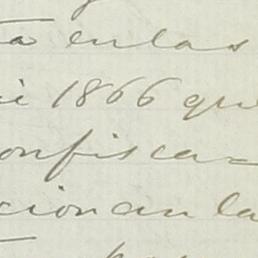 ta en las
1866 que
onfisca=
cionan la